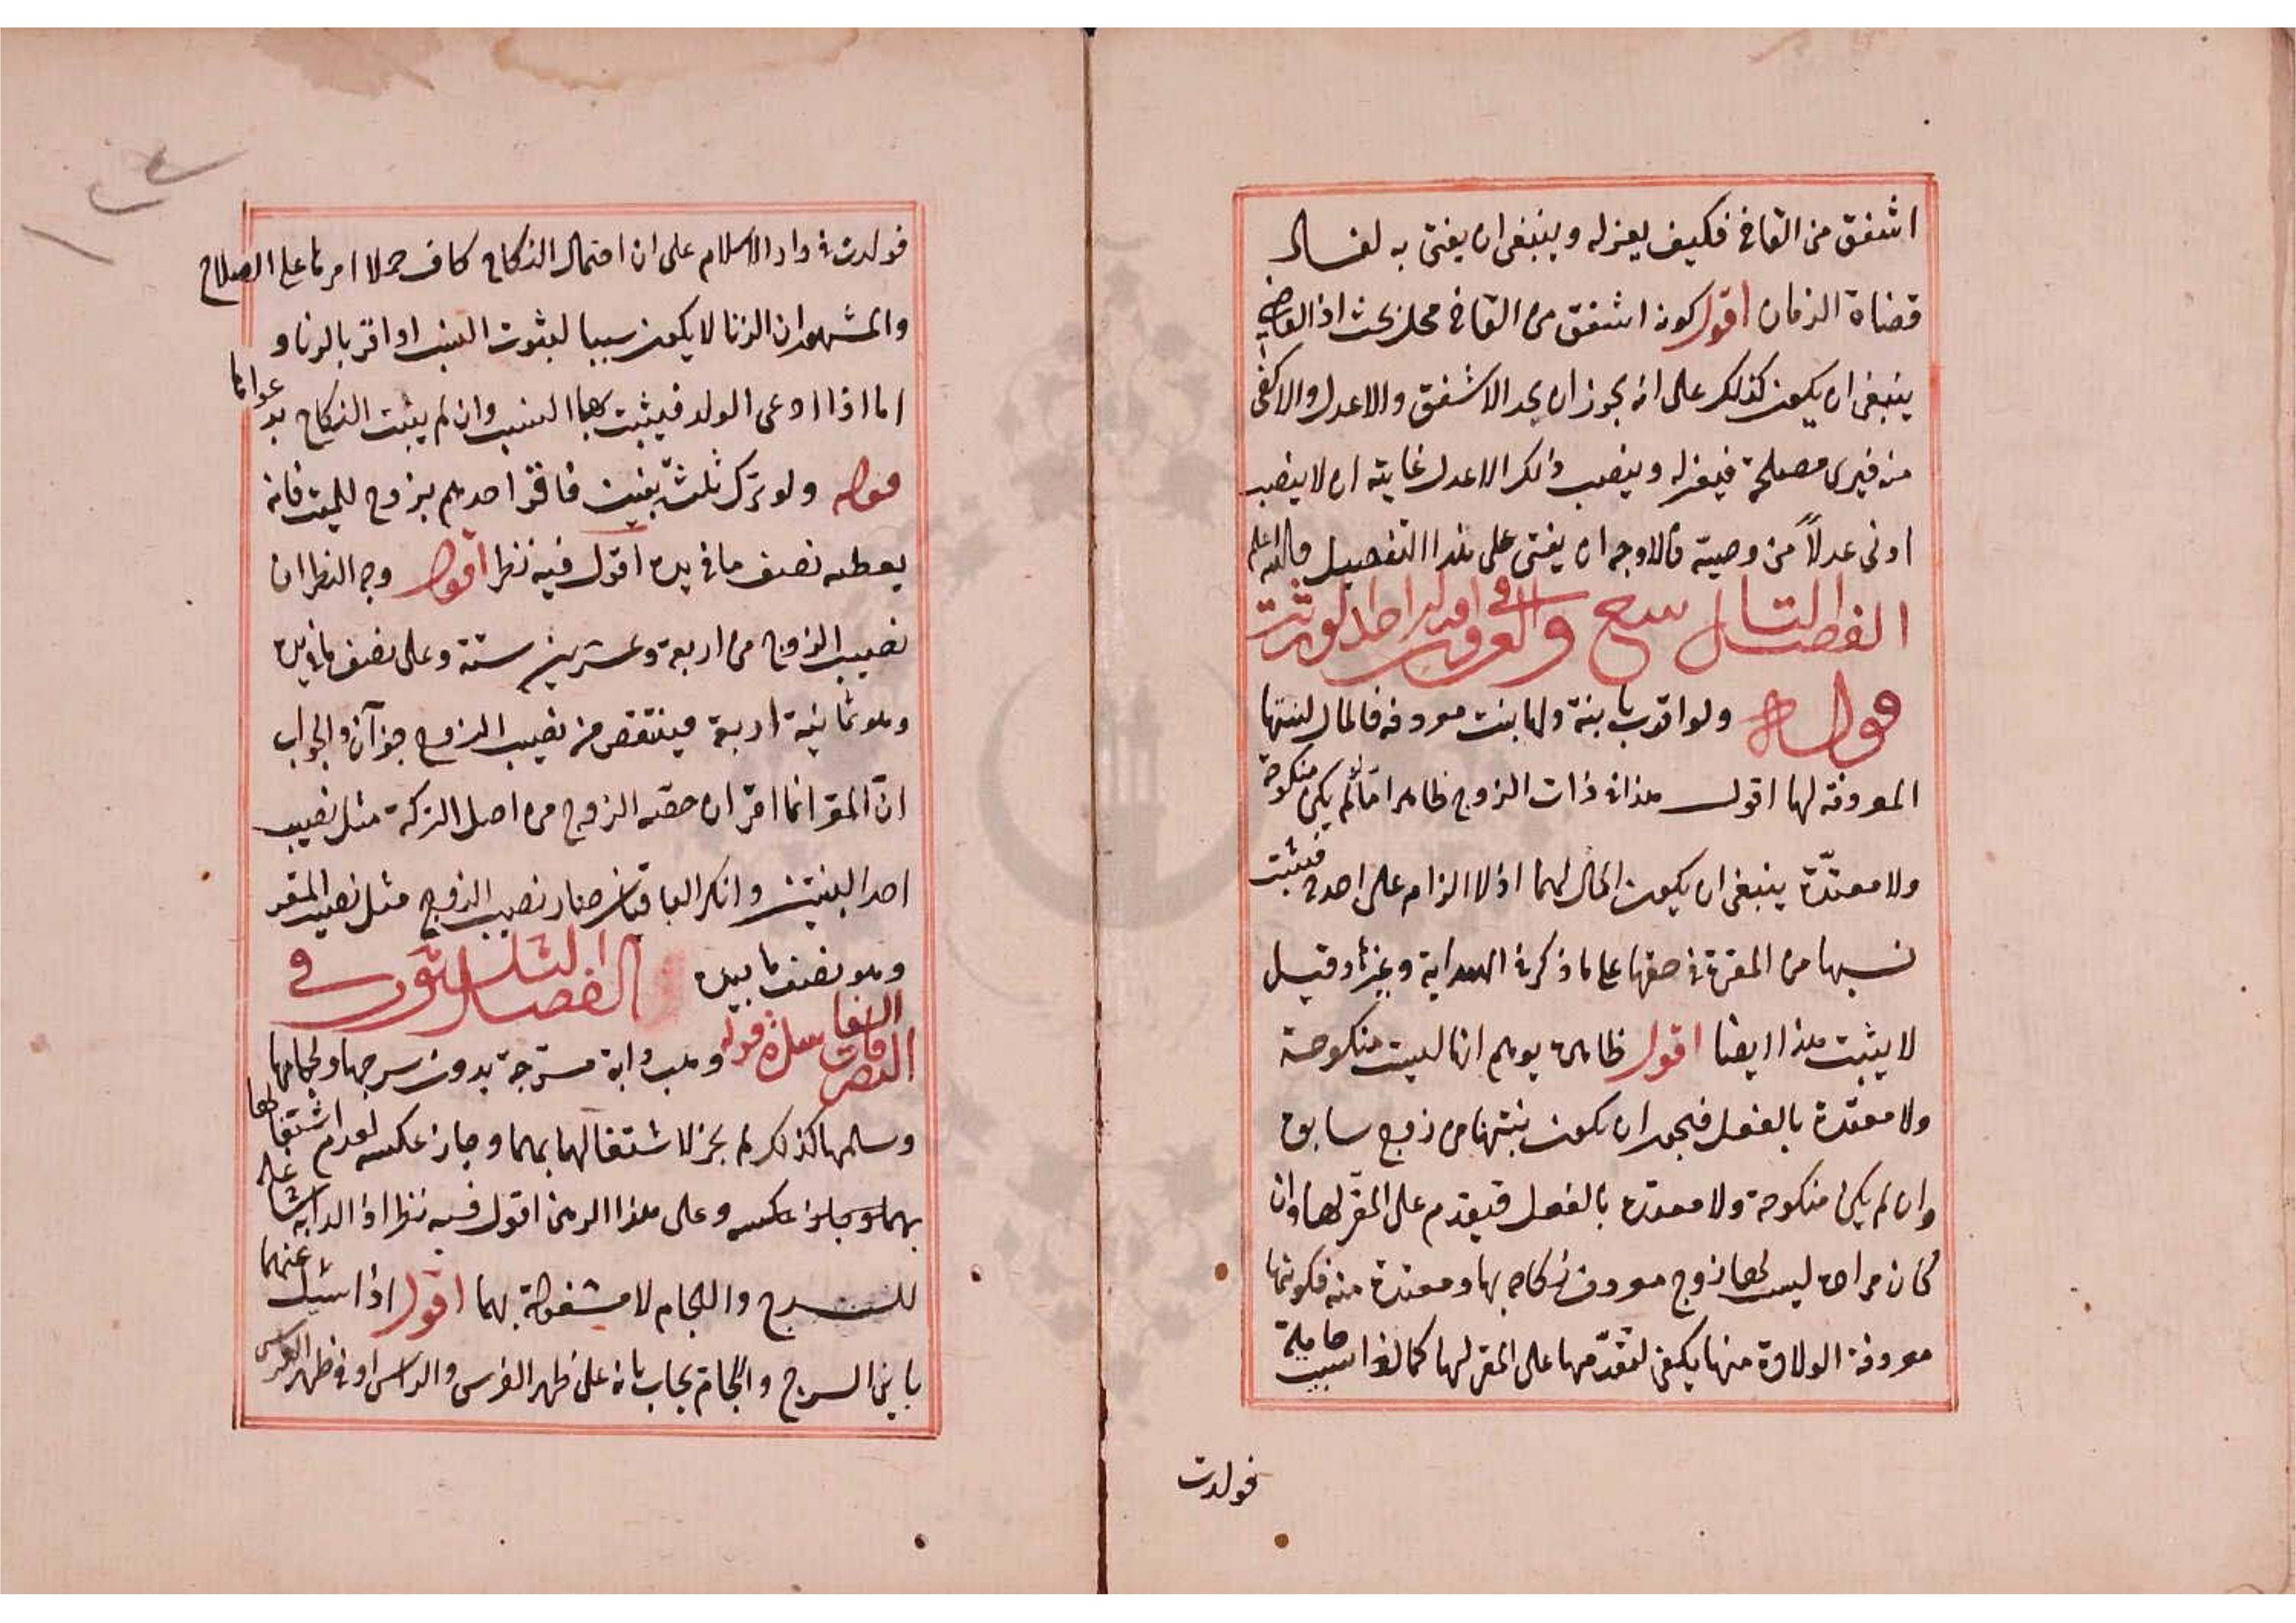 اشفق من القاضى فكيف يعزله وينبغى ان يفتى به لفساد
قضاة الزمان اقول كونه اشفق من القاضى محل بحث اذ القاضى
ينبغى ان يكون كذلك على انه يجوز ان يجد الاشفق والاعدل والاكفى
منه فيرى مصلحة فيعزله وينصب ذلك الاعدل غايته ان لا ينصب
ادنى عدلاً من وصيته فالاوجه ان يفتى على هذا التفصيل والله اعلم
الفصل التاسع والعشرون فى اقرار احد الورثة
قوله ولو اقرت بابنة ولها بنت معروفة فالمال لبنتها
المعروفة لها اقول هذا فى ذات الزوج ظاهر امّا لم يكن منكوحة
ولا معتدّة ينبغى ان يكون المال لهما اذ لا الزام على احد فيثبت
نسبها من المقرة فى حقها على ما ذكر فى الهداية وغيرها وقيل
لا يثبت هذا ايضا اقول ظاهره يوهم انها ليست منكوحة
ولا معتدة بالفعل فيجوز ان يكون بنتها من زوج سابق
وان لم يكن منكوحة ولا معتدة بالفعل فيقدم على المقر لها وان
كان مراده ليس لها زوج معروف نكاحه بها ومعتدة منه فكونها
معروفة الولادة منها يكفى لتقدّمها على المقر لها كما لو سبيت حاملة
فولدت
فولدت فى دار الاسلام على ان احتمال النكاح كاف حملا امرها على الصلاح
والمشهور ان الزنا لا يكون سببا لثبوت النسب اذا اقر بالزنا و
اما اذا ادعى الولد فيثبت بهما النسب وان لم يثبت النكاح بدعواها
قوله ولو ترك ثلث بنين فاقر احدهم بزوج للميت فانه
يعطيه نصف ما فى يده اقول فيه نظر اقول وجه النظر ان
نصيب الزوج من اربعة وعشرين ستة وعلى نصف ما فى يده
وهو ثمانية اربعة فينتقص من نصيب الزوج جزآن والجواب
انّ المقر انما اقر ان حصة الزوج من اصل التركة مثل نصيب
احد البنين وانكر الباقيان صار نصيب الزوج مثل نصيب المقر
وهو نصف ما بيده الفصل الثلثون فى
التصرفات الفاسدة قوله وهب دابة مسرجة بدون سرجها ولجامها
وسلمها كذلك لم يجز لاشتغالها بهما وجاز عكسه لعدم اشتغالها
بهما وجاز عكسه وعلى هذا الرهن اقول فيه نظر اذ الدابة شاغلة
للسرج واللجام لا مشغولة بهما اقول اذا سئل عنهما
باين السرج واللجام يجاب بانه على ظهر الفرس والراس او فى ظهر الفرس